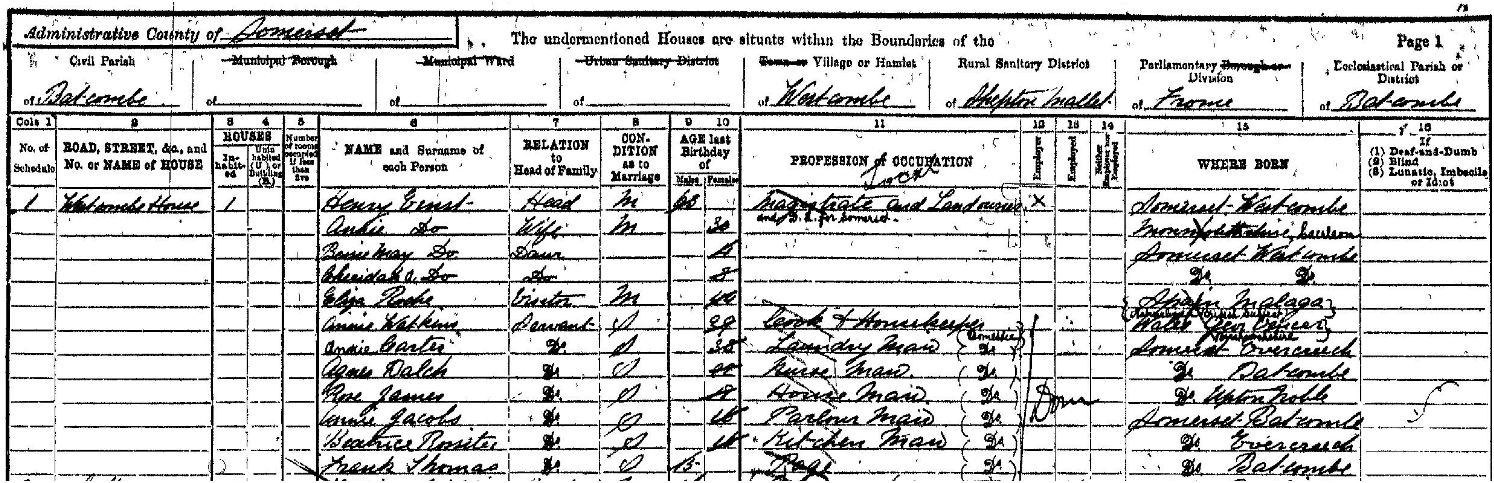 Administrative County of Somerset
The undermentioned Houses are situate within the Boundaries of the
Page 1
Civil Parish of Batcombe
Municipal Borough of
Municipal Ward of
Urban Sanitary District of
Town or Village or Hamlet of Westcombe
Rural Sanitary District of Shepton Mallet
Parliamentary Borough or Division of Frome
Ecclesiastical Parish or District of Batcombe
Cols 1 2 3 4 5 6 7 8 9 10 11 12 13 14 15 16
No. of Schedule
ROAD, STREET, &c., and No. or NAME of HOUSE
HOUSES
Inhabited
Uninhabited (U.) or Building (B.)
Number of rooms occupied if less than five
NAME and Surname of each Person
RELATION to Head of Family
CONDITION as to Marriage
AGE last Birthday of
Males Females
PROFESSION or OCCUPATION
Employer
Employed
Neither Employer nor Employed
WHERE BORN
If
(1) Deaf-and-Dumb
(2) Blind
(3) Lunatic, Imbecile or Idiot
1 Westcombe House 1 Henry Ernst Head M Magistrate and Land owner X Somerset Westcombe
and D. L. for Somerset
Annie Do Wife M 30 Monmouthshire
May Do Daur Somerset Westcombe
Do Do 8 Do Do
Eliza Roche Visitor M Spain Malaga
Annie Watkins Servant S 29 Cook & Housekeeper Wales
Annie Carter Do S 38 Laundry Maid (Domestic Do) Somerset Evercreech
Agnes Dalch Do S Nurse Maid (Do) Do Batcombe
Rose James Do S 18 House Maid (Do) Dom Do Upton Noble
Annie Jacobs Do S 18 Parlour Maid (Do) Somerset Batcombe
Beatrice Rossiter Do S Kitchen Maid (Do) Do Evercreech
Frank Thomas Do S 15 Page (Do) Do Batcombe